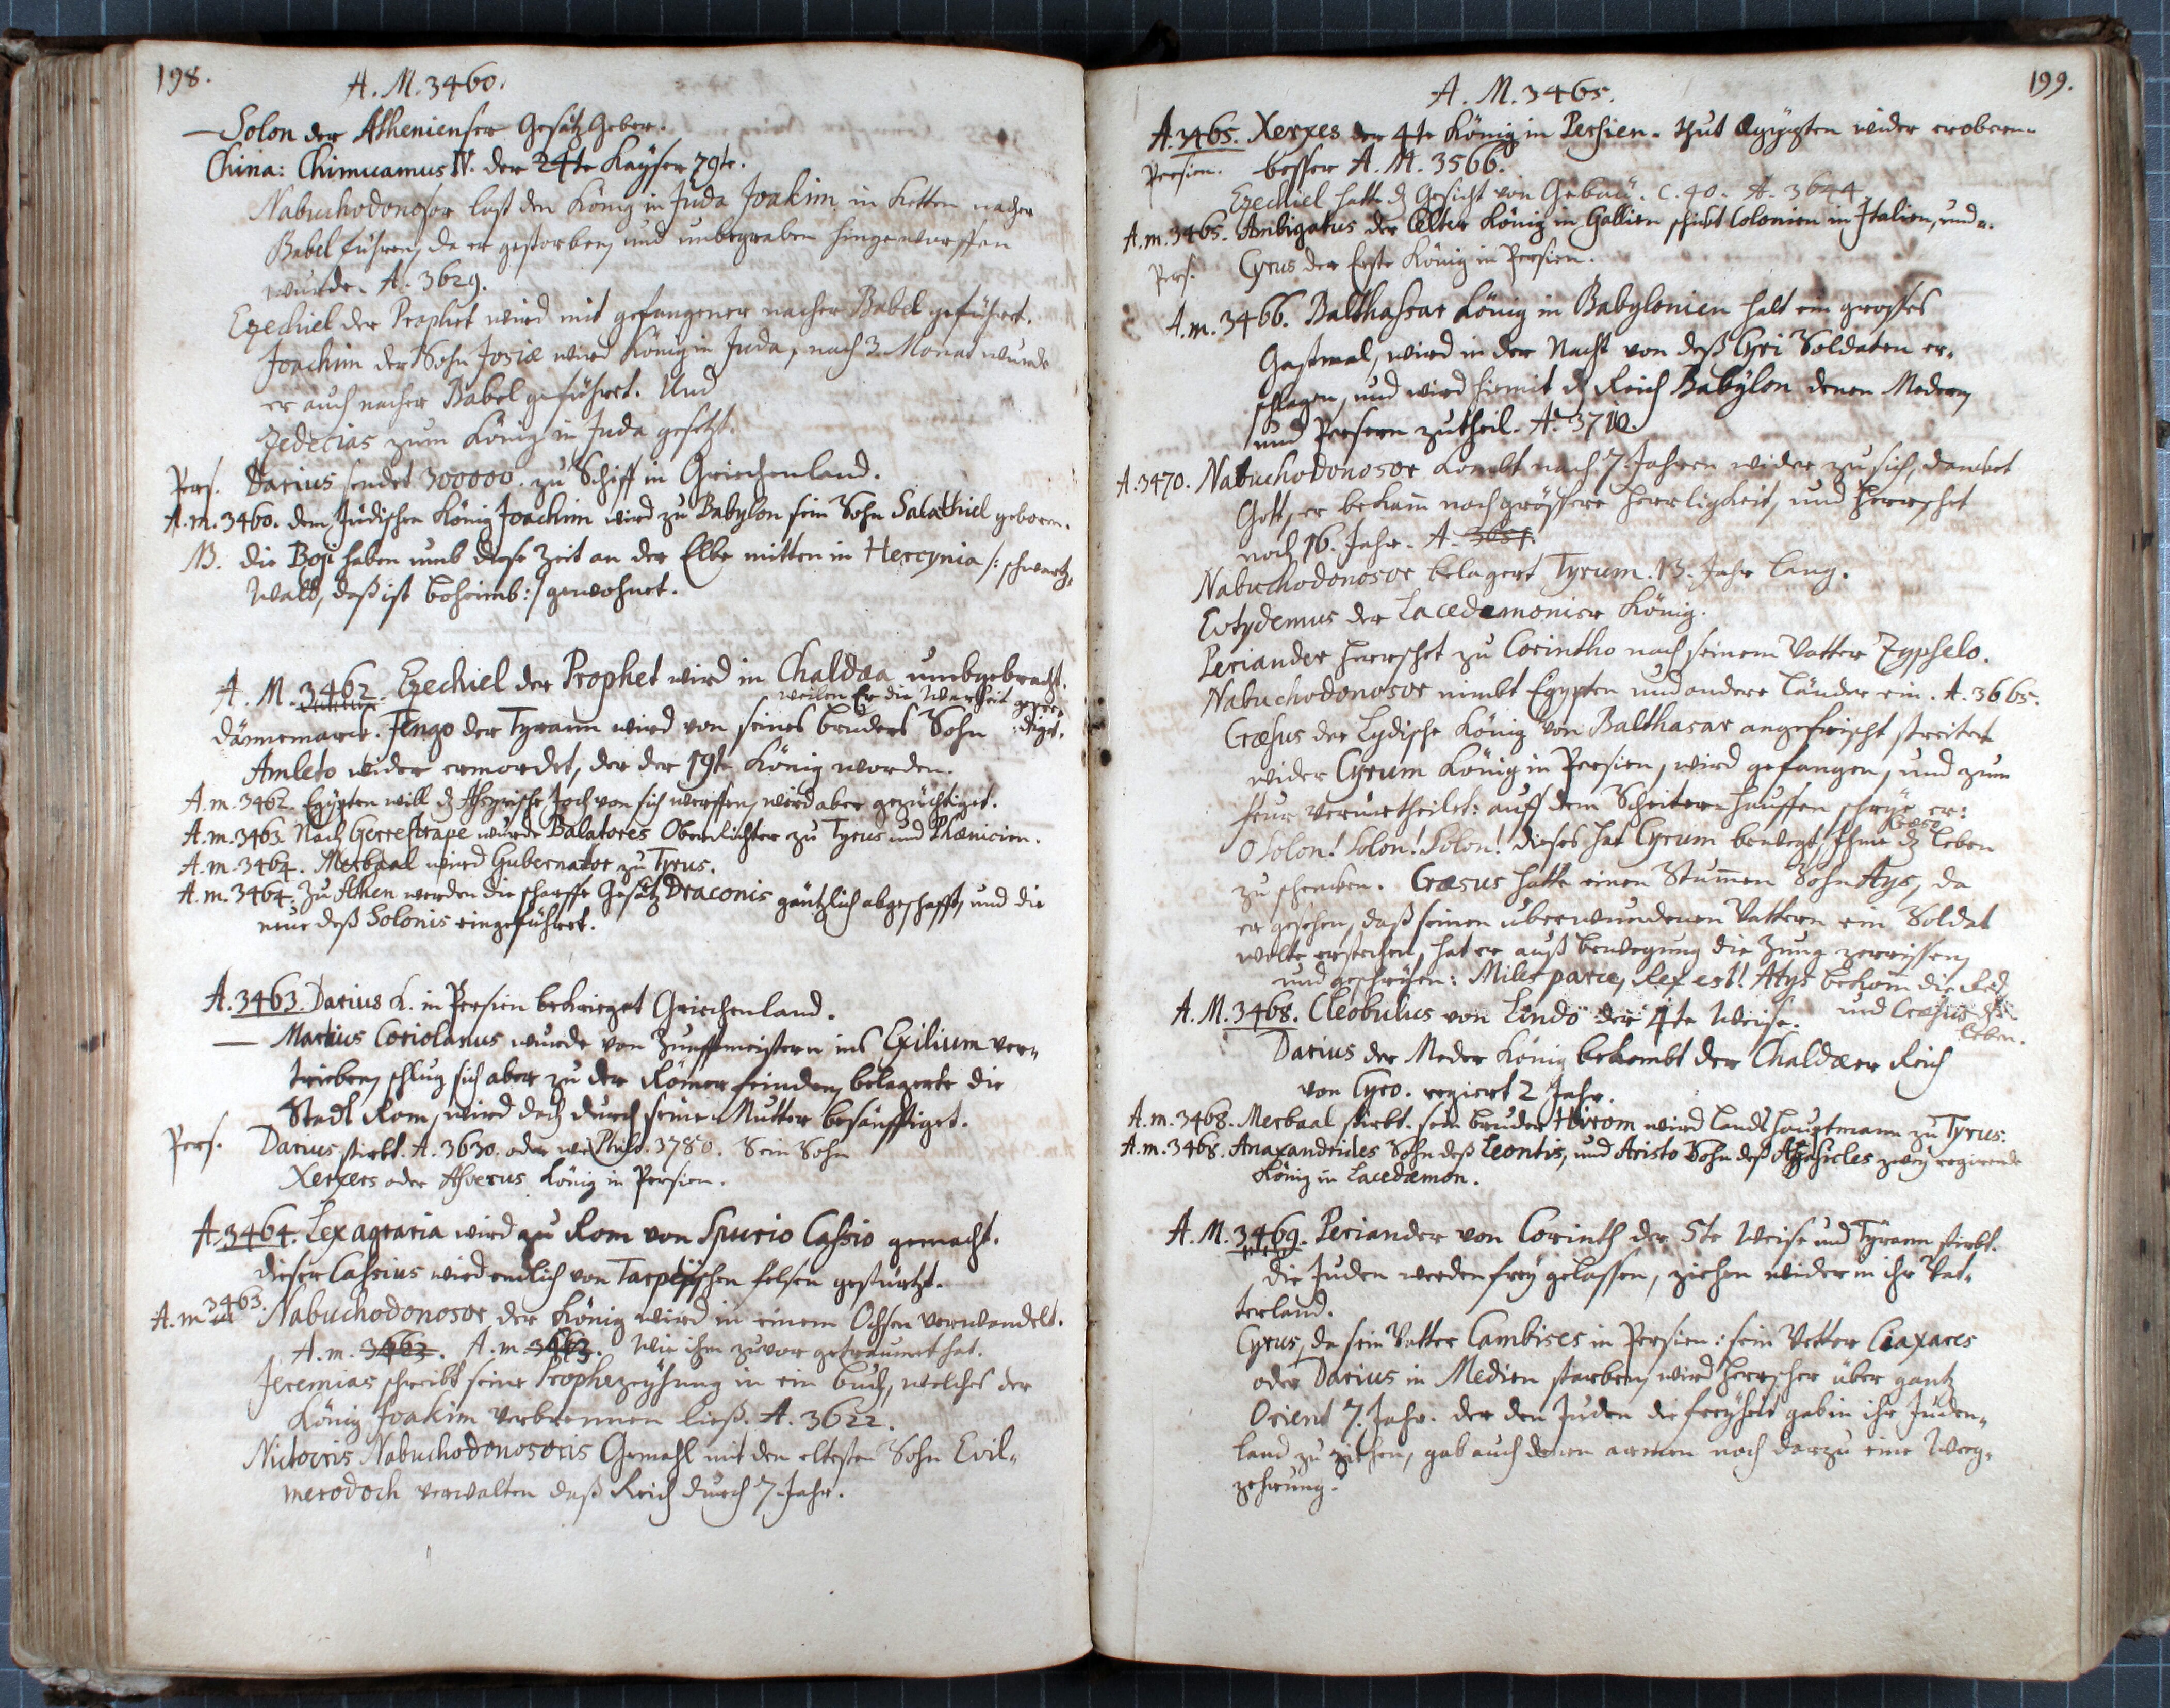 198.
A. M. 3460.
— Solon der Athenienser Gesätz Geber.
China: Chimuamus IV. der 24te Kayser 79te.
Nabuchodonosor last den König in Juda Joakim in Ketten nacher
Babel führen, da er gestorben, und unbegraben hingeworffen
wurde. A. 3629.
Ezechiel der Prophet wird mit gefangener nacher Babel geführet.
Joachim der Sohn Josiæ wird König in Juda, nach 3. Monat wurde
er auch nacher Babel geführet. Und
Zedecias zum König in Juda gesetzt.
Pers. Darius sendet 300000. zu Schiff in Griechenland.
A. m. 3460. dem Judischen König Joachim wird zu Babylon sein Sohn Salathiel geboren.
B. die Boji haben umb diese Zeit an der Elbe mitten in Hercynia /: schwartz-
Wald, daß ist Boheimb :/ gewohnet.
A. M. 3462. Ezechiel der Prophet wird in Chaldæa umbgebracht.
weilen Er die Warheit gepre-
diget.
Dännemarck. Fengo der Tyrann wird von seines bruders Sohn
Amleto wider ermordet, der der 19te König worden.
A. m. 3462. Egypten will dz Assyrische Joch von sich werffen, wird aber gezüchtiget.
A. m. 3463. Nach Gerrestrape wurde Balatores Oberrichter zu Tyrus und Phænicien.
A. m. 3464. Merbaal wird Gubernator zu Tyrus.
A. m. 3464. Zu Athen werden die scharffe Gesätz Draconis gäntzlich abgeschafft, und die
neue deß Solonis eingeführet.
A. 3463. Darius K. in Persien bekrieget Griechenland.
— Martius Coriolanus wurde von Zunfftmeistern ins Exilium ver-
trieben, schlug sich aber zu der Römer feinden, belagerte die
Stadt Rom, wird doch durch seine Mutter besänfftiget.
Pers. Darius stirbt. A. 3630. oder wie Phil. 3780. Sein Sohn
Xerxes oder Asverus König in Persien.
A. 3464. Lex agraria wird zu Rom von Spurio Cassio gemacht.
dieser Cassius wird endlich von Tarpejischen felsen gestürtzt.
A. m. 3463. Nabuchodonosor der König wird in einem Ochsen verwandelt.
A. m. 3463. A. m. 3463. Wie ihm zuvor getraumet hat.
Jeremias schreibt seine Prophezeyhung in ein buch, welches der
König Joakim verbrennen ließ. A. 3622.
Nictocris Nabuchodonosoris Gemahl mit den eltesten Sohn Evil-
merodoch verwalten daß Reich durch 7. Jahr.
199.
A. M. 3465.
A. 3465. Xerxes der 4te König in Persien. thut Ægypten wider erobern.
Persien. besser A. M. 3566.
Ezechiel hatte dz Gesicht von Gebäu. C. 40. A. 3644
A. m. 3465. Ambigatus der Celter König in Gallien schickt Colonien in Italien, und
Pers. Cyrus der Erste König in Persien.
A. m. 3466. Balthassar König in Babylonien halt ein grosses
Gastmal, wird in der Nacht von deß Cyri Soldaten er-
schlagen, und wird hiemit dz Reich Babylon denen Medern
und Persern zutheil. A. 3710.
A. 3470. Nabuchodonosor kombt nach 7. Jahren wider zu sich, dancket
Gott, er bekam noch grössere Herrligkeit, und herrschet
noch 16. Jahr. A. 3651.
Nabuchodonosor belagert Tyrum. 13. Jahr lang.
Evtydemus der Lacedæmonier König.
Periander herrschet zu Corintho nach seinem Vatter Zypselo.
Nabuchodonosor nimbt Egypten und andere Länder ein. A. 3665.
Cræsus der Lydische König von Balthasar angefrischt streitet
wider Cyrum König in Persien, wird gefangen, und zum
feur verurtheilet: auff dem Scheiter-hauffen schrye er:
O Solon! Solon! Solon! dieses hat Cyrum bewegt, Ihme dz Leben
Cræso
zu schencken. Cræsus hatte einen Stummen Sohn Atys, da
er gesehen, daß seinen uberwundenen Vattern ein Soldat
wolte erstechen, hat er auß bewegung die Zung zerrissen,
und geschryhen: Miles parce, Rex est! Atys bekam die Red,
und Cræsus dz
Leben.
A. M. 3468. Cleobulus von Lindo der 4te Weise.
Darius der Meder König bekombt der Chaldæer Reich
von Cyro. regiert 2 Jahr.
A. m. 3468. Merbaal stirbt. sein bruder Hirom wird Landshauptmann zu Tyrus.
A. m. 3468. Anaxandrides Sohn deß Leontis, und Aristo Sohn deß Agasicles zwey regierende
König in Lacedæmon.
A. M. 3469. Periander von Corinth der 5te Weise und Tyrann stirbt.
die Juden werden frey gelassen, ziehen wider in ihr Vat-
terland.
Cyrus, da sein Vatter Cambises in Persien: sein Vetter Ciaxares
oder Darius in Medien starben, wird herrscher über gantz
Orient 7. Jahr. der den Juden die freyheit gab in ihr Juden-
land zu ziehen, gab auch denen armen noch darzu eine Weeg-
zehrung.